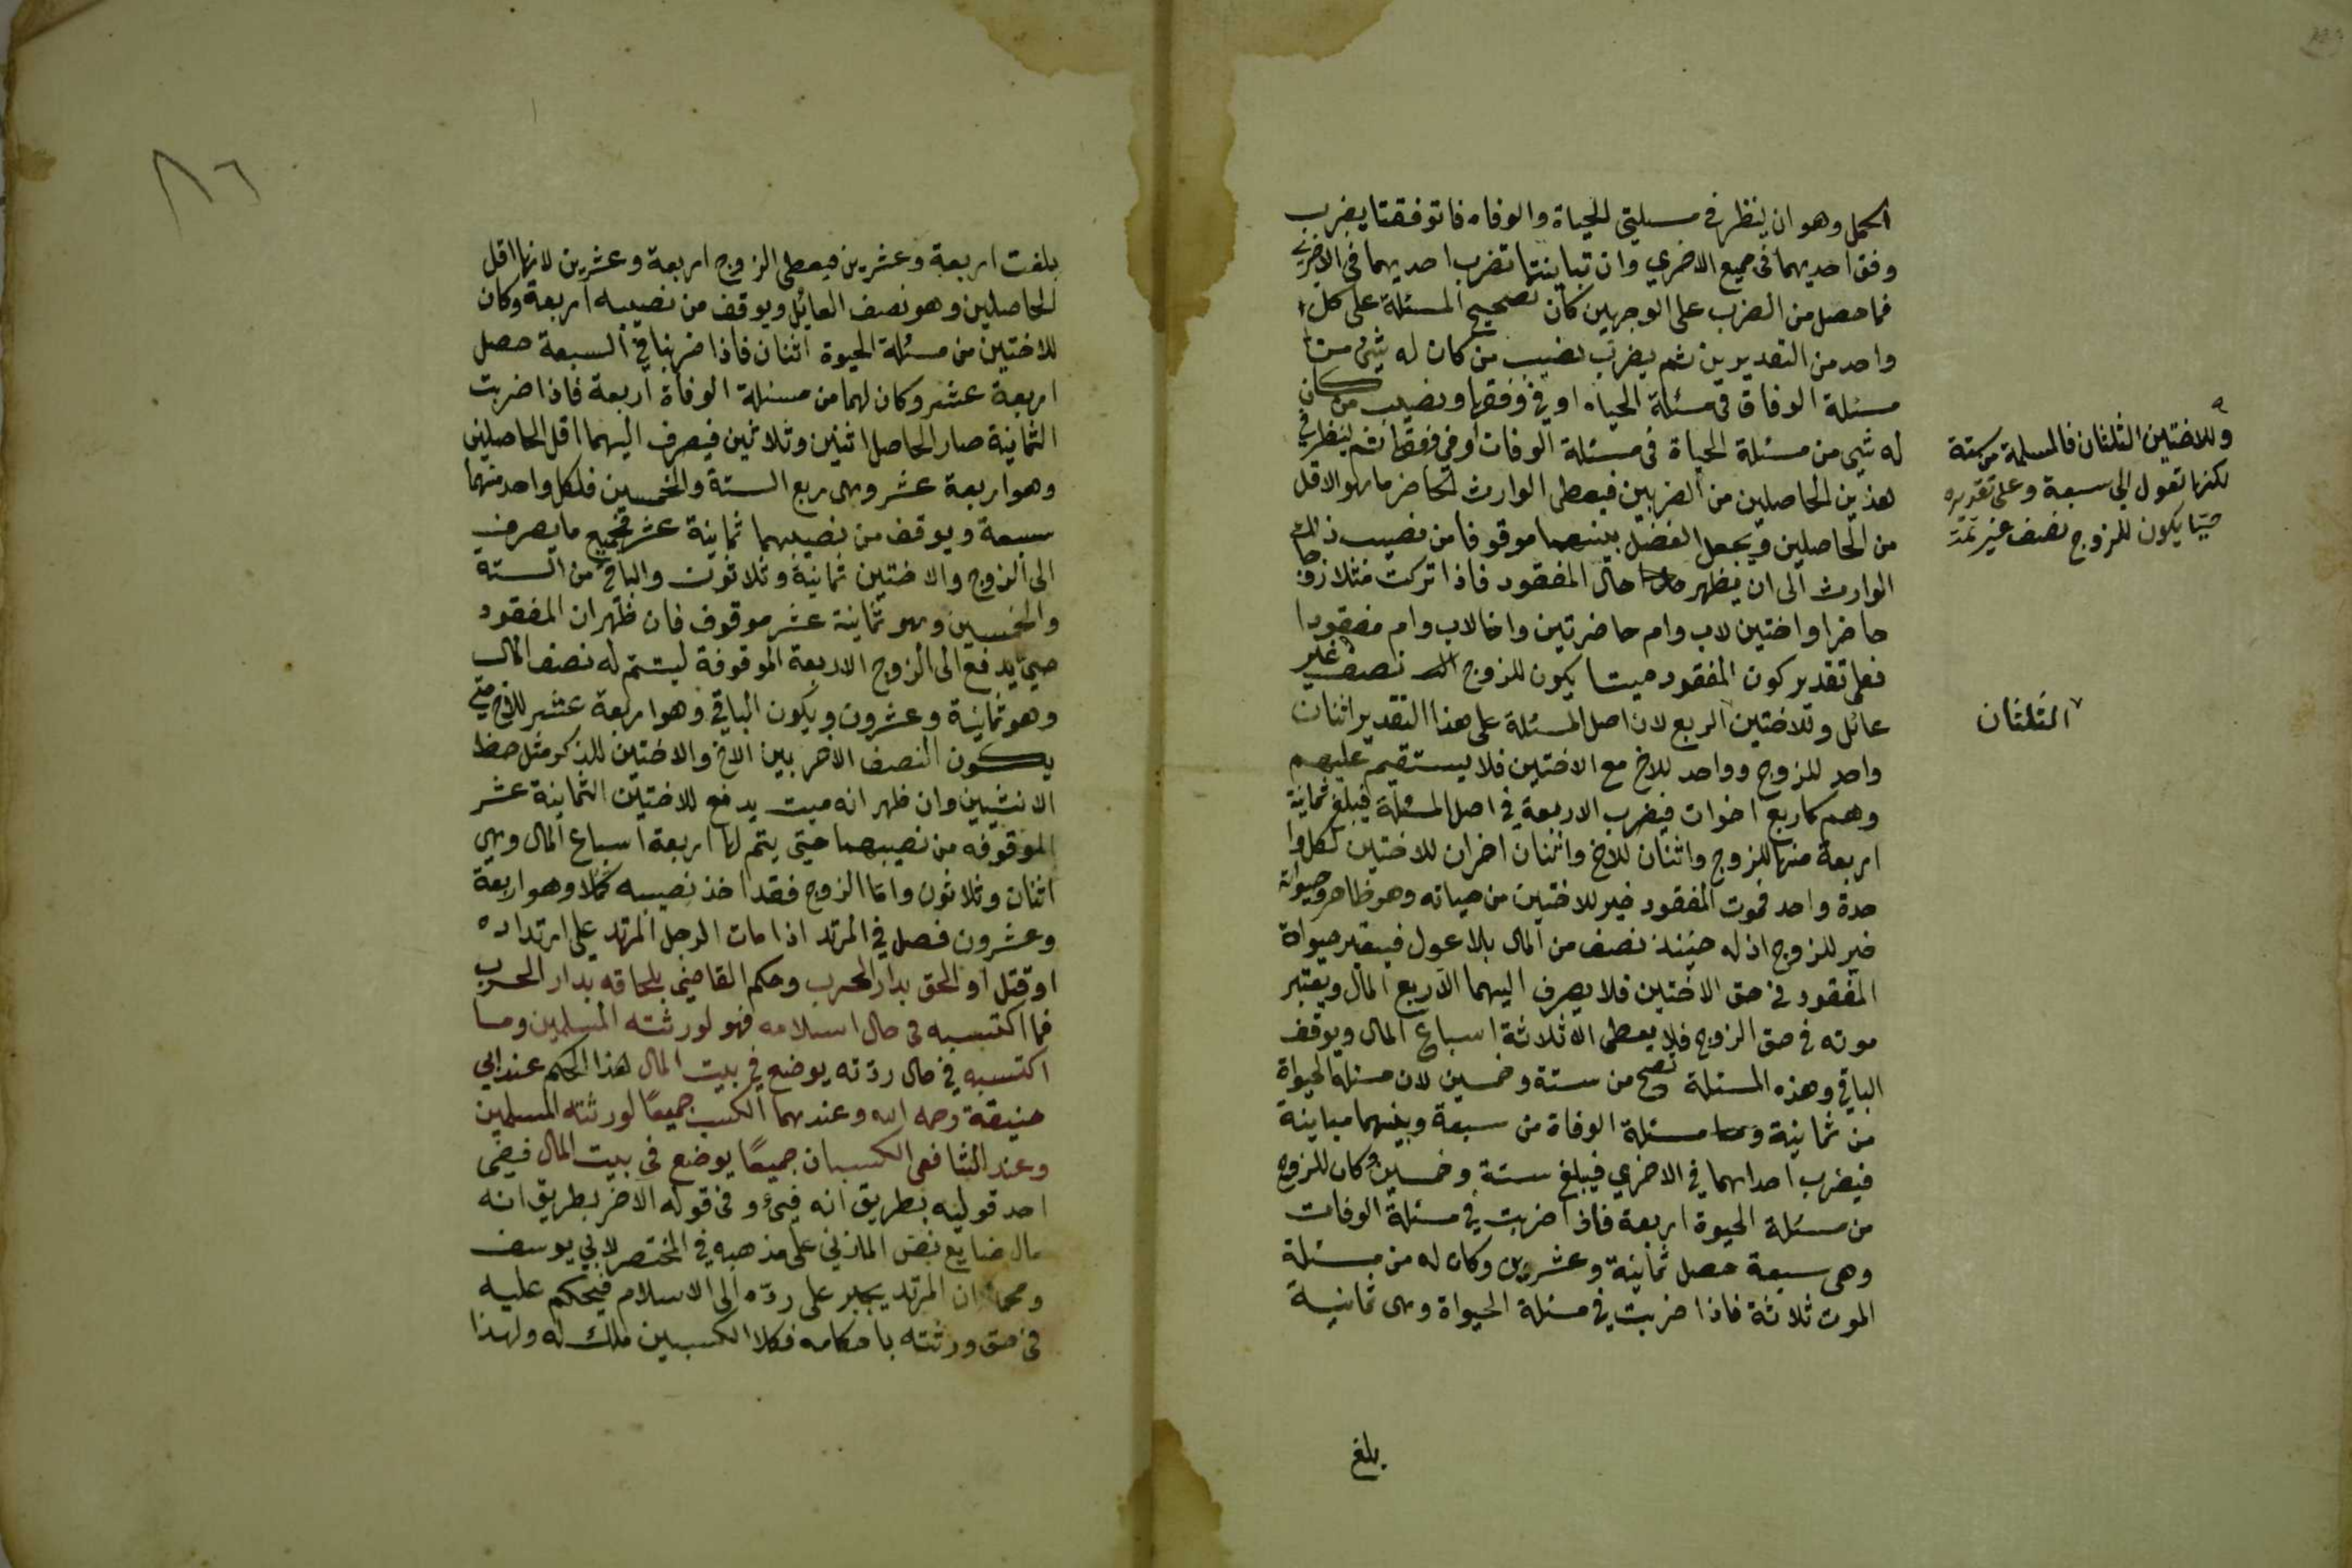 الحمل وهو ان ينظر فى مسيلتى الحياة والوفاه فاتوفقتا يضرب
وفق احديهما فى جميع الاخري وان تباينتا تضرب احديهما فى الاخرى
فما حصل من الضرب على الوجهين كان تصحيح المسئلة على كل
واحد من التقديرين ثم يضرب نصيب من كان له شئ من
مسئلة الوفاة فى مسئلة الحياه او فى وفقها ونصيب من كان
له شئ من مسئلة الحياة فى مسئلة الوفات او فى وفقها ثم ينظر فى
هذين الحاصلين من الضربين فيعطى الوارث الحاضر ما هو الاقل
من الحاصلين ويجعل الفضل بينهما موقوفا من نصيب ذلك
الوارث الى ان يظهر حال المفقود فاذا تركت مثلا زوجا
حاضرا واختين لاب وام حاضرتين واخا لاب وام مفقودا
فعلى تقدير كون المفقود ميتا يكون للزوج نصف غير
عائل وللاختين الربع لان اصل المسئلة على هذا التقدير اثنان
واحد للزوج وواحد للاخ مع الاختين فلا يستقيم عليهم
وهم كاربع اخوات فيضرب الاربعة فى اصل المسئلة فيبلغ ثمانية
اربعة منها للزوج واثنان للاخ واثنان اخران للاختين لكل وا
حدة واحد فموت المفقود خير للاختين من حياته وهو ظاهر وحيواته
خير للزوج اذ له حينئذ نصف من المال بلا عول فيقير حيواة
المفقود فى حق الاختين فلا يصرف اليهما الا ربع المال ويعتبر
موته فى حق الزوج فلا يعطى الا ثلاثة اسباع المال ويوقف
الباقي وهذه المسئلة تصح من ستة وخمسين لان مسئلة الحيواة
من ثمانية و مسئلة الوفاة من سبعة وبينهما مباينة
فيضرب احداهما فى الاخري فيبلغ ستة وخمسين وكان للزوج
من مسئلة الحيوة اربعة فاذا ضربت فى مسئلة الوفات
وهى سبعة حصل ثمانية وعشرين وكان له من مسئلة
الموت ثلاثة فاذا ضربت فى مسئلة الحيواة وهى ثمانية
بلغ
وللاختين الثلثان فالمسلمة من ستة
لكنها تعول الى سبعة وعلى تقديره
حيّا يكون للزوج نصف غير
الثلثان
٨٦
بلغت اربعة وعشرين فيعطى الزوج اربعة وعشرين لانها اقل
الحاصلين وهو نصف العايل ويوقف من نصيبه اربعة وكان
للاختين من مسئلة الحيوة اثنان فاذا ضربنا فى السبعة حصل
اربعة عشر وكان لهما من مسئلة الوفاة اربعة فاذا ضربت
الثمانية صار الحاصل اثنين وثلاثين فيصرف اليهما اقل الحاصلين
وهو اربعة عشر وهى ربع الستة والخمسين فلكل واحد منهما
سبعة ويوقف من نصيبهما ثمانية عشر فجميع ما يصرف
الى الزوج والاختين ثمانية وثلاثون والباقى من الستة
والخمسين وهو ثمانية عشر موقوف فان ظهر ان المفقود
حيّ يدفع الى الزوج الاربعة الموقوفة ليتم له نصف المال
وهو ثمانية وعشرون ويكون الباقي وهو اربعة عشر للاخ حتى
يكون النصف الاخر بين الاخ والاختين للذكر مثل حظ
الانثيين وان ظهر انه ميت يدفع للاختين الثمانية عشر
الموقوفه من نصيبهما حتى يتم لها اربعة اسباع المال وهى
اثنان وثلاثون واما الزوج فقد اخذ نصيبه كملا وهو اربعة
وعشرون فصل فى المرتد اذا مات الرجل المرتد على ارتداده
او قتل او الحق بدار الحرب وحكم القاضى بلحاقه بدار الحرب
فما اكتسبه فى حال اسلامه فهو لورثته المسلمين وما
اكتسبه فى حال ردّته يوضع فى بيت المال هذا الحكم عند ابي
حنيفة رحمه الله وعندهما الكسب جميعًا لورثته المسلمين
وعند الشافعى الكسبان جميعًا يوضع فى بيت المال ففى
احد قوليه بطريق انه فيئ وفى قوله الاخر بطريق انه
مال ضايع نص المازنى على مذهبه فى المختصر لابي يوسف
ومحمد ان المرتد يجبر على ردّه الى الاسلام فيحكم عليه
فى حق ورثته باحكامه فكلا الكسبين ملك له ولهذا